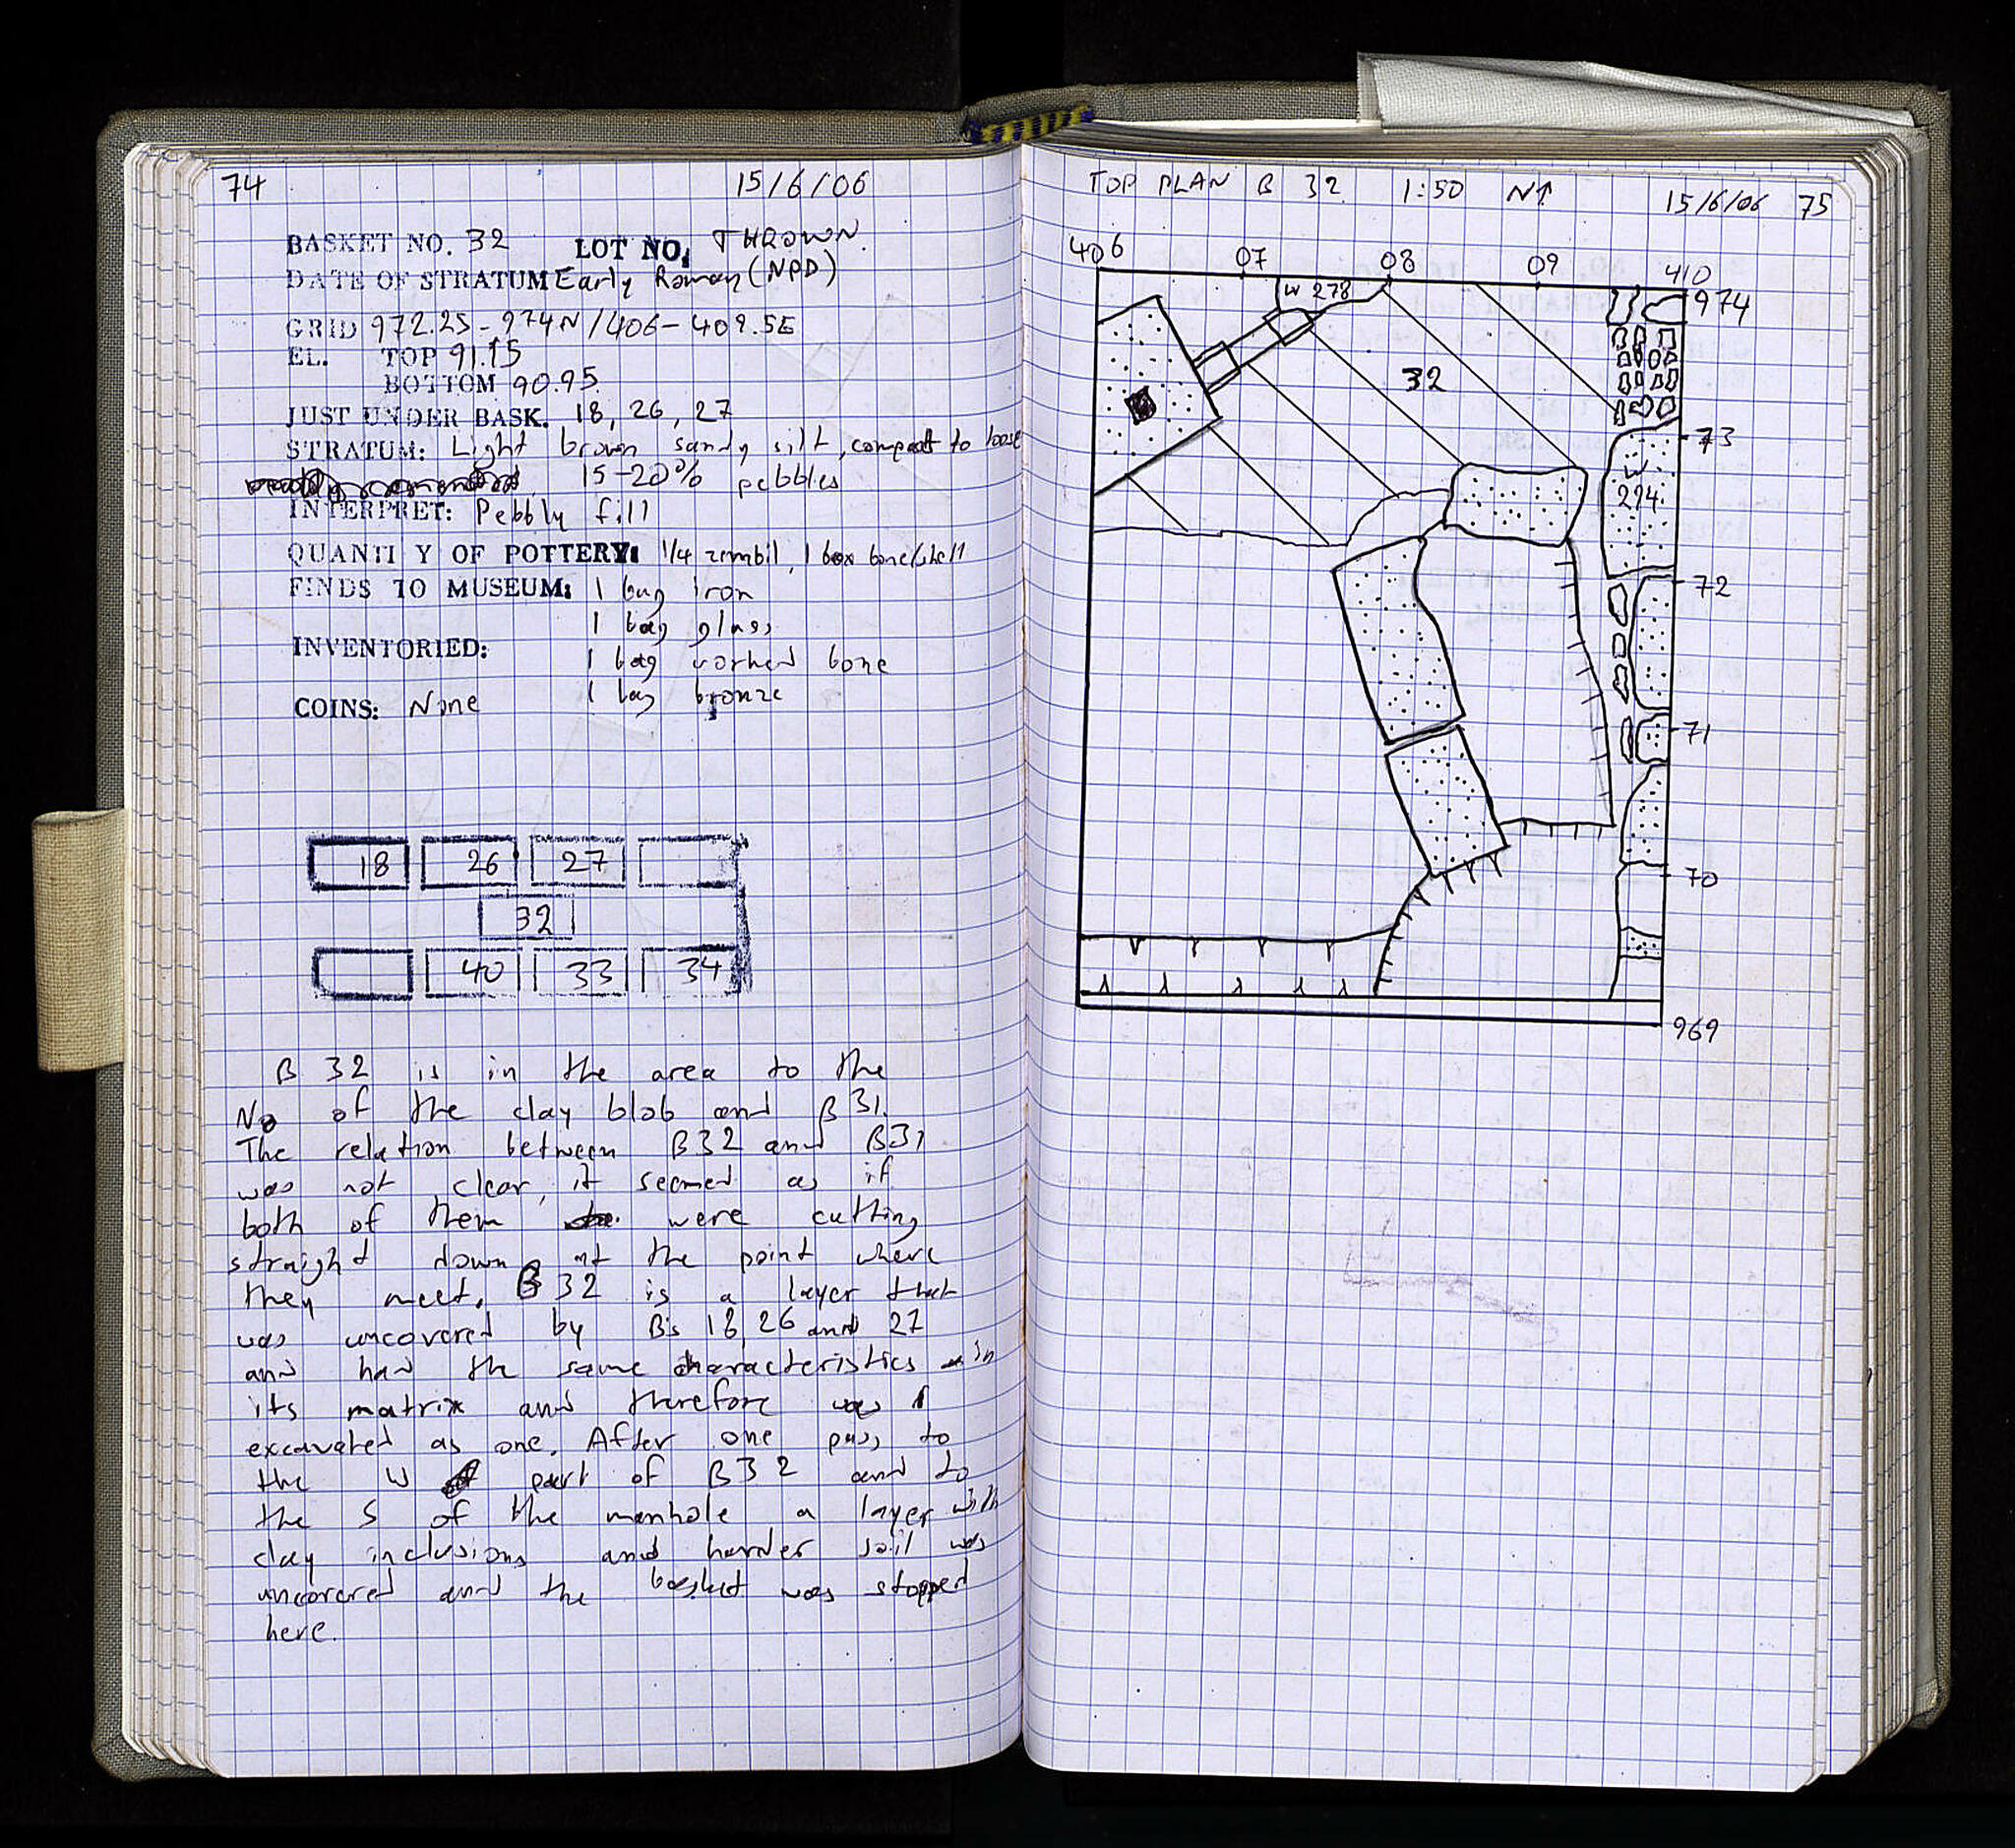 74 15/6/06
BASKET NO. 32 LOT NO. THROWN.
DATE OF STRATUM Early Roman (NPD)
GRID 972.25 - 974N / 406 - 409.5E
EL. TOP 91.15
BOTTOM 90.95
JUST UNDER BASK. 18, 26, 27
STRATUM: Light brown sandy silt, compact to loose
15-20% pebbles
INTERPRET: Pebbly fill
QUANTI Y OF POTTERY: 1/4 zembil, 1 box bone/shell
FINDS TO MUSEUM: 1 bag iron
1 bag glass
INVENTORIED:
1 bag worked bone
1 bag bronze
COINS: None
18 26 27
32
40 33 34
B 32 is in the area to the
No of the clay blob and B 31.
The relation between B32 and B31
was not clear, it seemed as if
both of them were cutting
straight down at the point where
they meet. B 32 is a layer that
was uncovered by B's 18, 26 and 27
and had the same characteristics in
its matrix and therefore was
excavated as one. After one pass to
the W part of B32 and to
the S of the manhole a layer with
clay inclusions and harder soil was
uncovered and the basket was stopped
here.
TOP PLAN B 32 1:50 N↑ 15/6/06 75
406 07 08 09 410
W 278
974
32
73
W
294
72
71
70
969